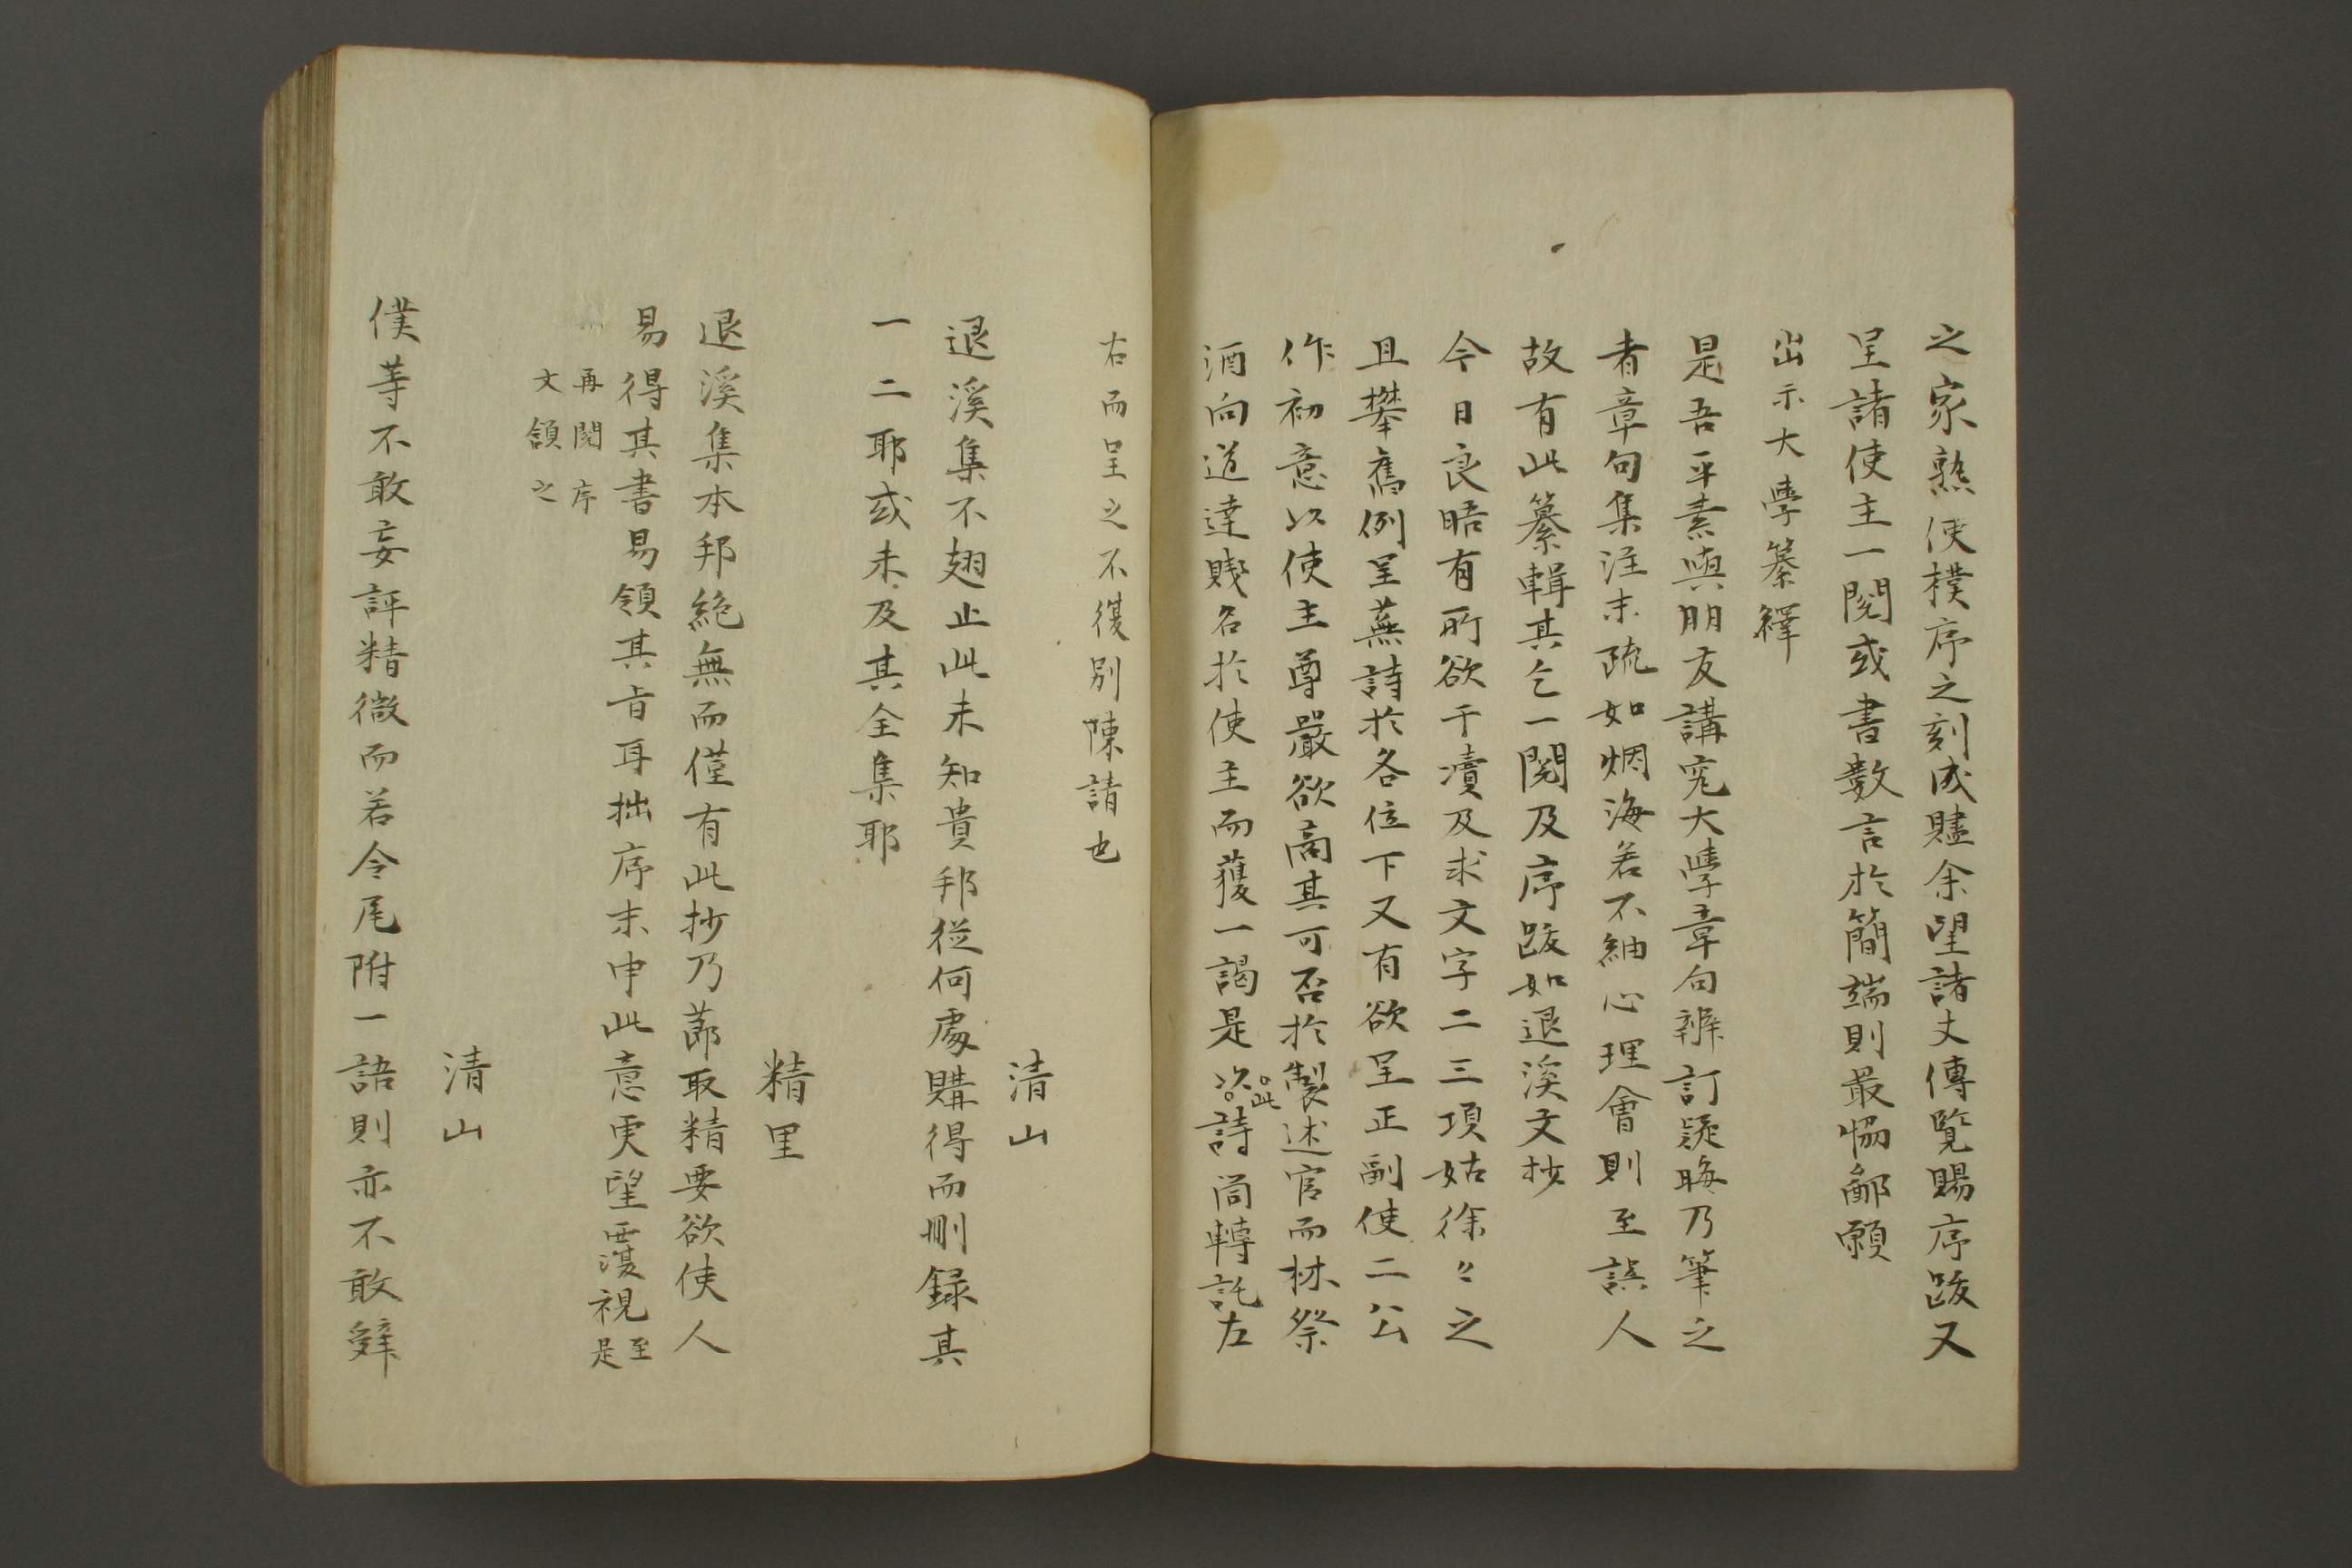 之家熟使樸序之刻成贐余望諸丈傳覧賜序跋又
呈諸使主一閱或書数言於簡端則最恊鄙願
出示大學纂釋
是吾平素與朋友講究大學章句辨訂疑晦乃筆之
者章句集注末疏如烟海若不紬心理會則至誤人
故有此纂輯其乞一閱及序跋如退溪文抄
今日良晤有所欲干瀆及求文字二三項姑徐々之
且攀舊例呈蕪詩於各位下又有欲呈正副使二公
作初意以使主尊嚴欲商其可否於製述官而林祭
酒向道達賤名於使主而獲一謁是以此詩尚轉託左
右而呈之不復別陳請也
清山
退溪集不翅止此未知貴邦從何處購得而刪録其
一二耶或未及其全集耶
精里
退溪集本邦絶無而僅有此抄乃莭取精要欲使人
易得其書易領其旨耳拙序末申此意更望覆視至是
再閱序
文領之
清山
僕等不敢妄評精微而若令尾附一語則亦不敢辭